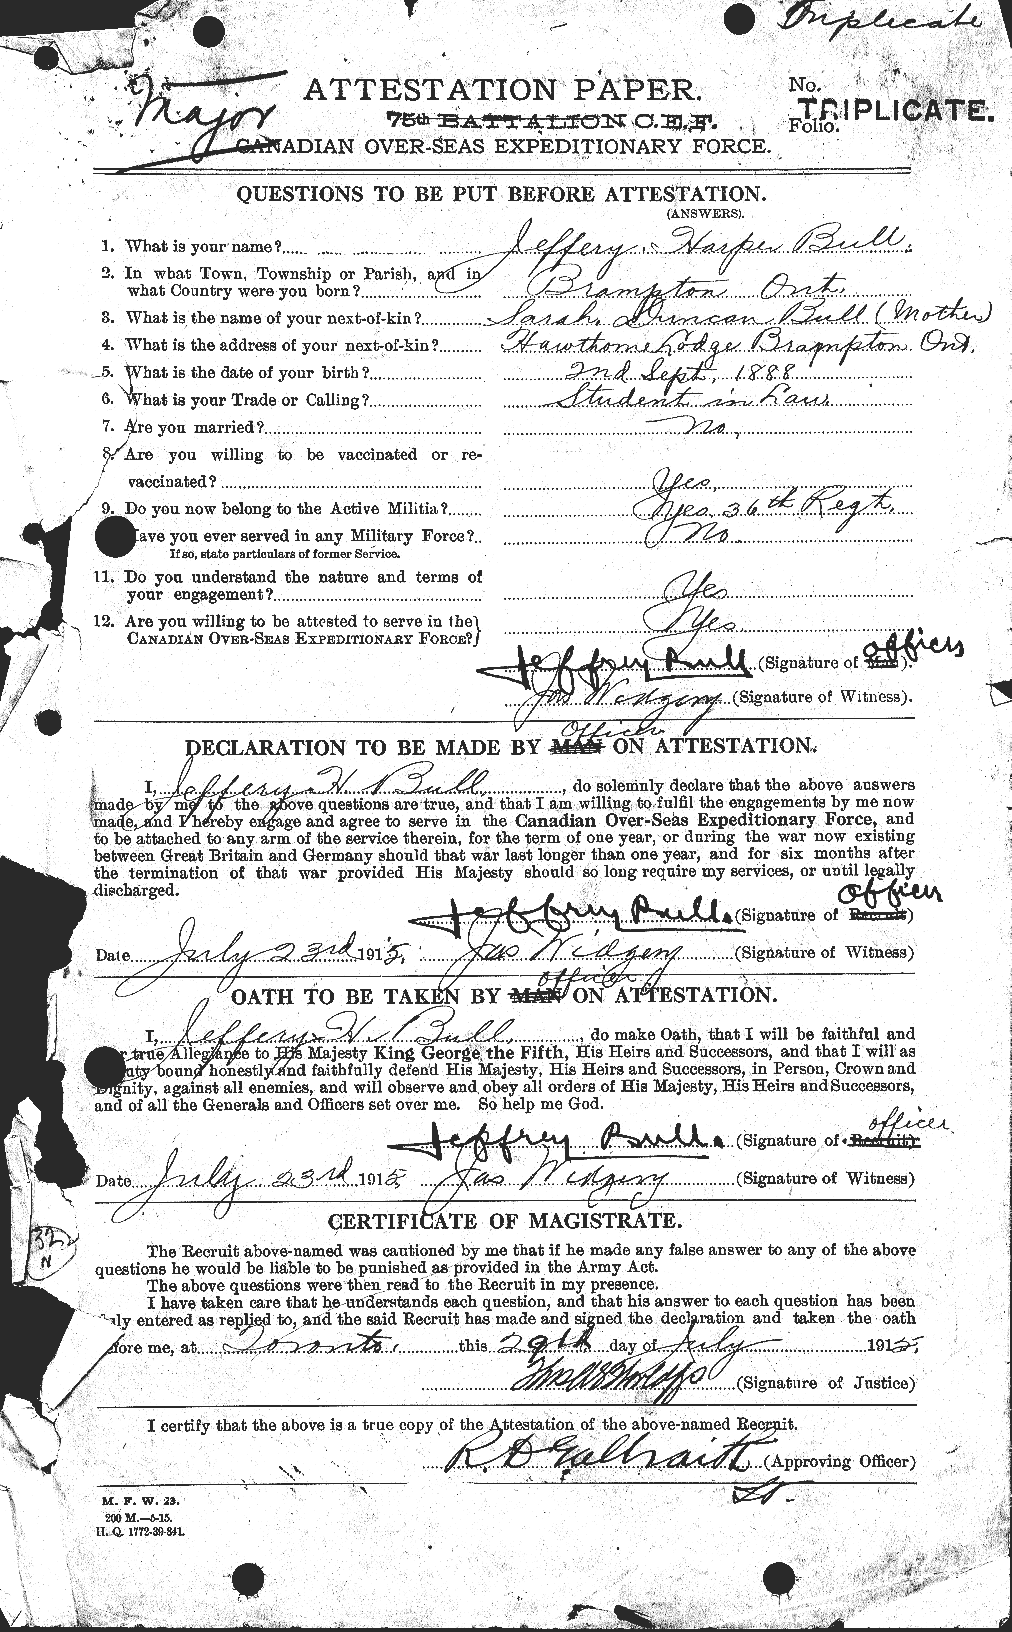 Triplicate
Major
ATTESTATION PAPER.
No.
TRIPLICATE.
Folio.
75th BATTALION C.E.F.
CANADIAN OVER-SEAS EXPEDITIONARY FORCE.
QUESTIONS TO BE PUT BEFORE ATTESTATION.
(ANSWERS).
1. What is your name? Jeffery. Harper Bull.
2. In what Town, Township or Parish, and in
what Country were you born? Brampton Ont.
3. What is the name of your next-of-kin? Sarah. Duncan Bull (Mother)
4. What is the address of your next-of-kin? Hawthorne Lodge Brampton Ont.
5. What is the date of your birth? 2nd Sept, 1888
6. What is your Trade or Calling? Student in Law.
7. Are you married? No,
8. Are you willing to be vaccinated or re-
vaccinated? Yes,
9. Do you now belong to the Active Militia? Yes 36th Regt.
ave you ever served in any Military Force? No.
If so, state particulars of former Service.
11. Do you understand the nature and terms of
your engagement? Yes
12. Are you willing to be attested to serve in the
CANADIAN OVER-SEAS EXPEDITIONARY FORCE? Yes.
officers
Jeffrey Bull (Signature of Man).
Jas Widgery (Signature of Witness).
Officer
DECLARATION TO BE MADE BY MAN ON ATTESTATION.
I, Jeffery H. Bull, do solemnly declare that the above answers
made by me to the above questions are true, and that I am willing to fulfil the engagements by me now
made, and I hereby engage and agree to serve in the Canadian Over-Seas Expeditionary Force, and
to be attached to any arm of the service therein, for the term of one year, or during the war now existing
between Great Britain and Germany should that war last longer than one year, and for six months after
the termination of that war provided His Majesty should so long require my services, or until legally
discharged.
officer
Jeffrey Bull. (Signature of Recruit)
Date July 23rd 1915. Jas Widgery (Signature of Witness)
officer
OATH TO BE TAKEN BY MAN ON ATTESTATION.
I, Jeffery H Bull, do make Oath, that I will be faithful and
r true Allegiance to His Majesty King George the Fifth, His Heirs and Successors, and that I will as
uty bound honestly and faithfully defend His Majesty, His Heirs and Successors, in Person, Crown and
Dignity, against all enemies, and will observe and obey all orders of His Majesty, His Heirs and Successors,
and of all the Generals and Officers set over me. So help me God.
officer
Jeffrey Bull. (Signature of Recruit)
Date July 23rd 1915 Jas Widgery (Signature of Witness)
CERTIFICATE OF MAGISTRATE.
The Recruit above-named was cautioned by me that if he made any false answer to any of the above
questions he would be liable to be punished as provided in the Army Act.
The above questions were then read to the Recruit in my presence.
I have taken care that he understands each question, and that his answer to each question has been
uly entered as replied to, and the said Recruit has made and signed the declaration and taken the oath
efore me, at Toronto. this 29th day of July 1915.
(Signature of Justice)
I certify that the above is a true copy of the Attestation of the above-named Recruit.
R D Galbraith (Approving Officer)
Lt.
M. F. W. 23.
200 M.—5-15.
H. Q. 1772-39-841.